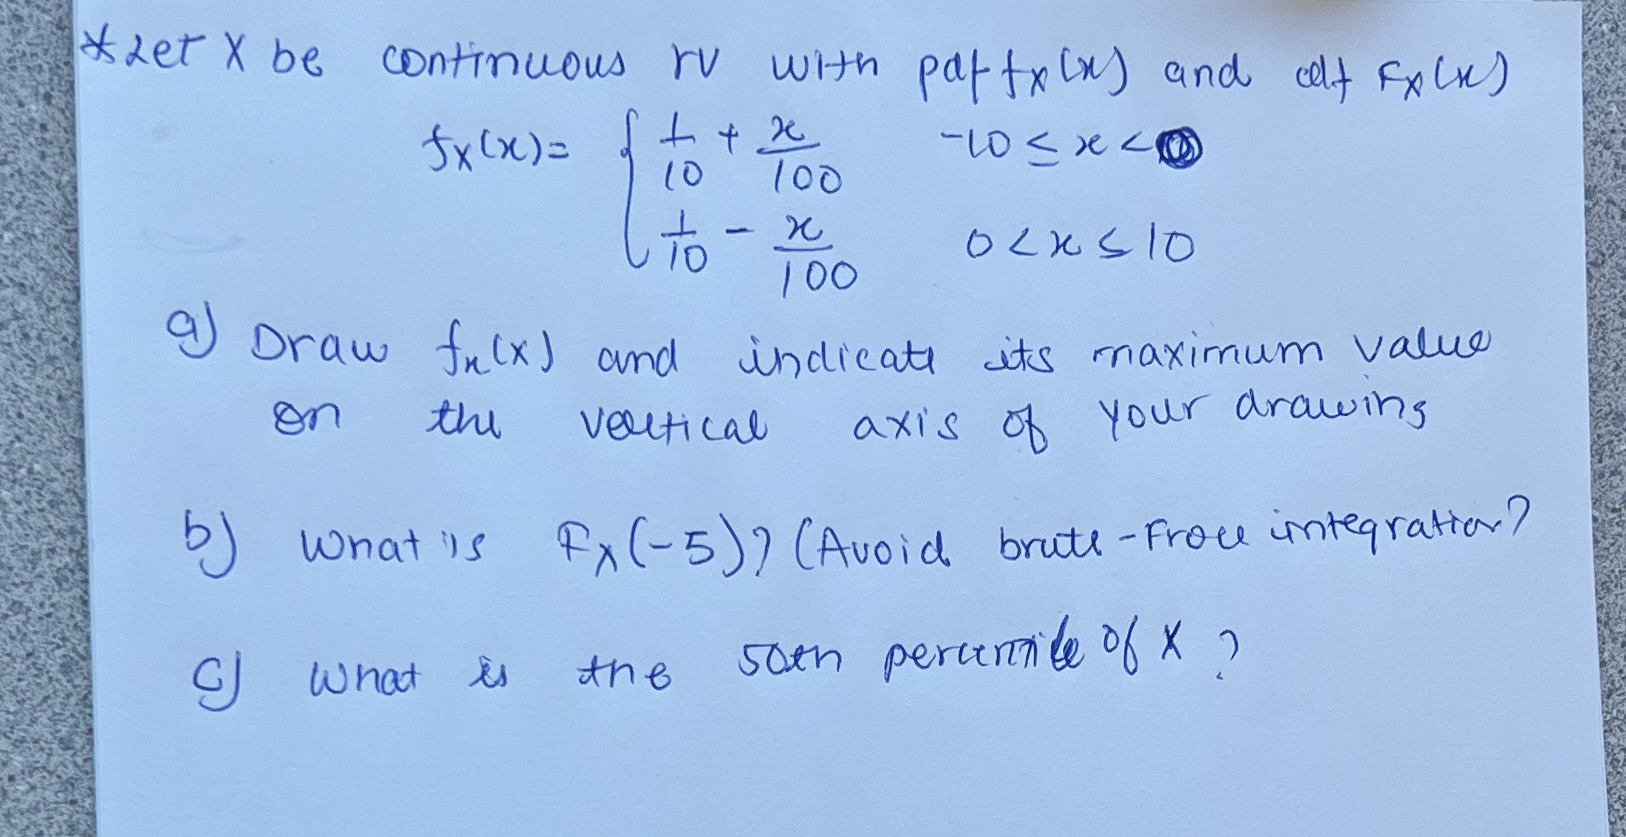 * Let X be continuous rv with pdf fx(x) and cdf Fx(x)
fx(x)= { 1/10 + x/100 -10 ≤ x < 0
1/10 - x/100 0 < x ≤ 10
a) Draw fx(x) and indicate its maximum value
on the vertical axis of your drawing
b) What is Fx(-5)? (Avoid brute-Froce integration?
c) What is the 50th percentile of X ?